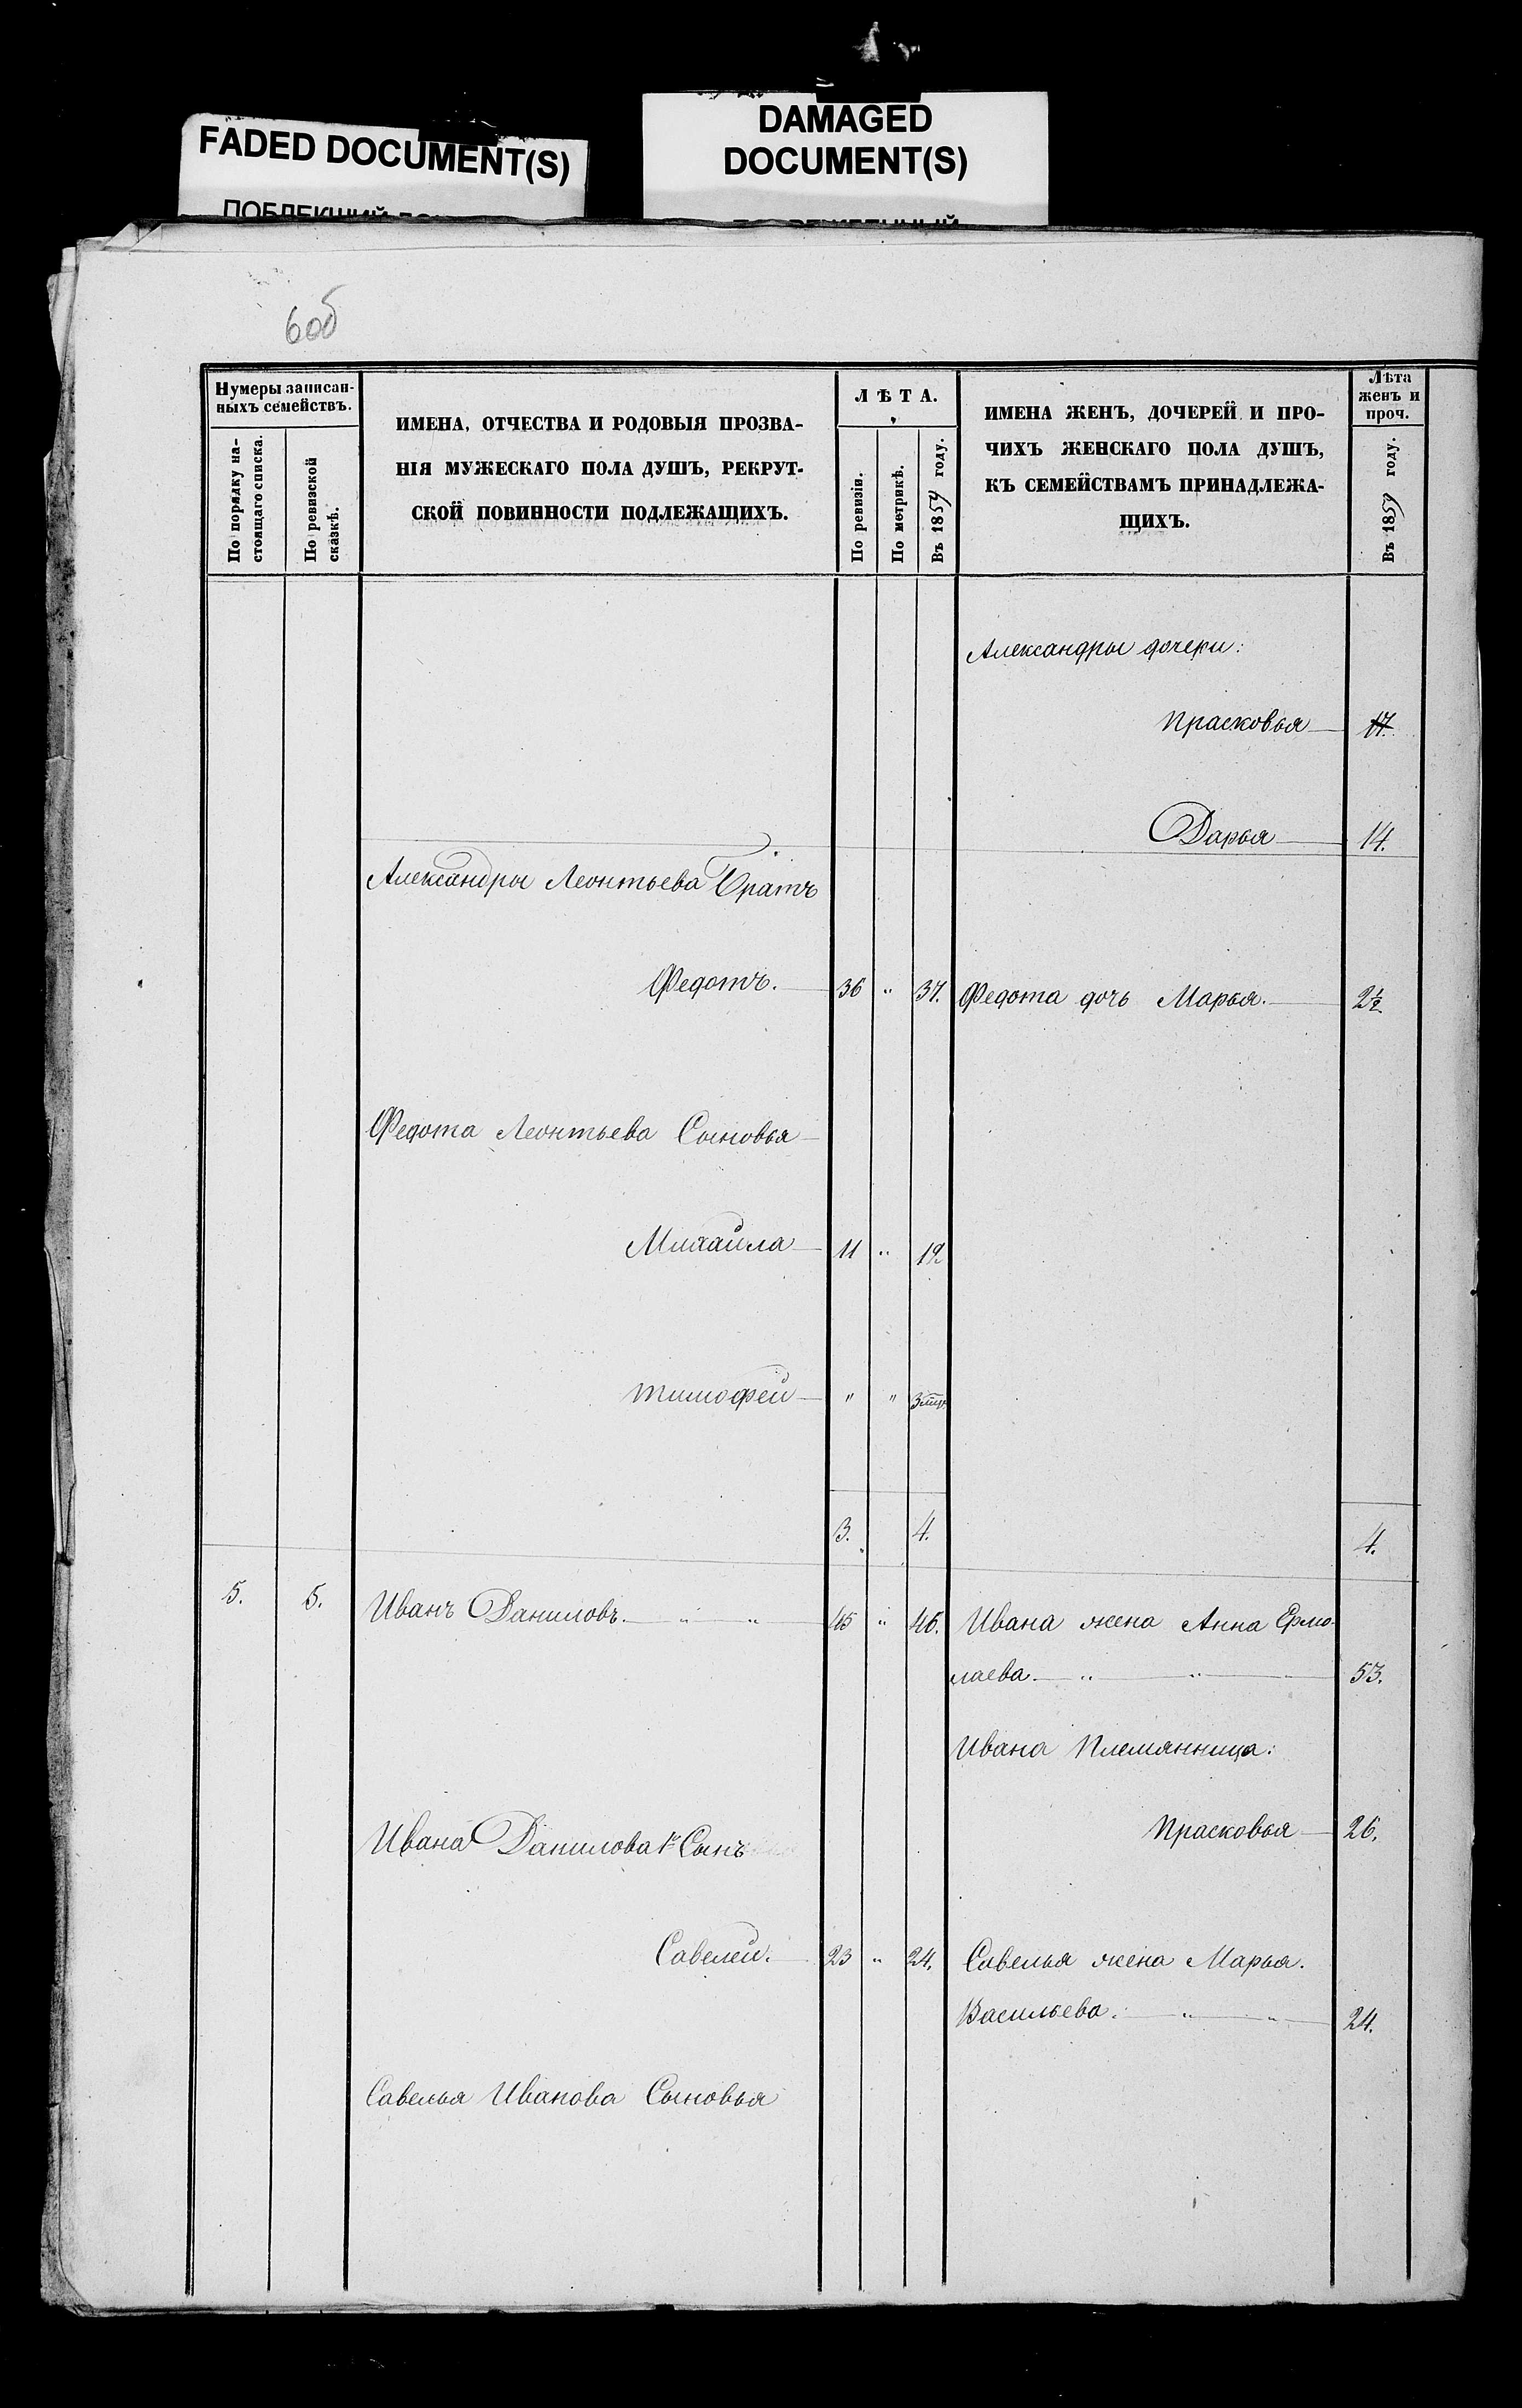 FADED DOCUMENT(S)
DAMAGED
DOCUMENT(S)
60об
Нумеры записан-
ныхъ семействъ.
По порядку на-
стоящаго списка.
По ревизской
сказкѣ.
ИМЕНА, ОТЧЕСТВА И РОДОВЫЯ ПРОЗВА-
НІЯ МУЖЕСКАГО ПОЛА ДУШЪ, РЕКРУТ-
СКОЙ ПОВИННОСТИ ПОДЛЕЖАЩИХЪ.
ЛѢТА.
По ревизіи.
По метрикѣ.
Въ 1859 году.
ИМЕНА ЖЕНЪ, ДОЧЕРЕЙ И ПРО-
ЧИХЪ ЖЕНСКАГО ПОЛА ДУШЪ,
КЪ СЕМЕЙСТВАМЪ ПРИНАДЛЕЖА-
ЩИХЪ.
Лѣта
женъ и
проч.
Въ 1859 году.
Александры дочери:
Прасковья 17.
Дарья 14.
Александры Леонтьева Братъ
Федотъ. 36 " 37. Федота дочь Марья. 2½
Федота Леонтьева Сыновья
Михайла 11 " 12
Тимофей " "
3. 4. 4.
5. 5. Иванъ Даниловъ. " " 45 " 46. Ивана жена Анна Ермо-
лаева. " " 53.
Ивана Племянница:
Прасковья 26.
Ивана Данилова 1й Сынъ
Савелей. 23 " 24. Савелья жена Марья.
Васильева. " " 24.
Савелья Иванова Сыновья